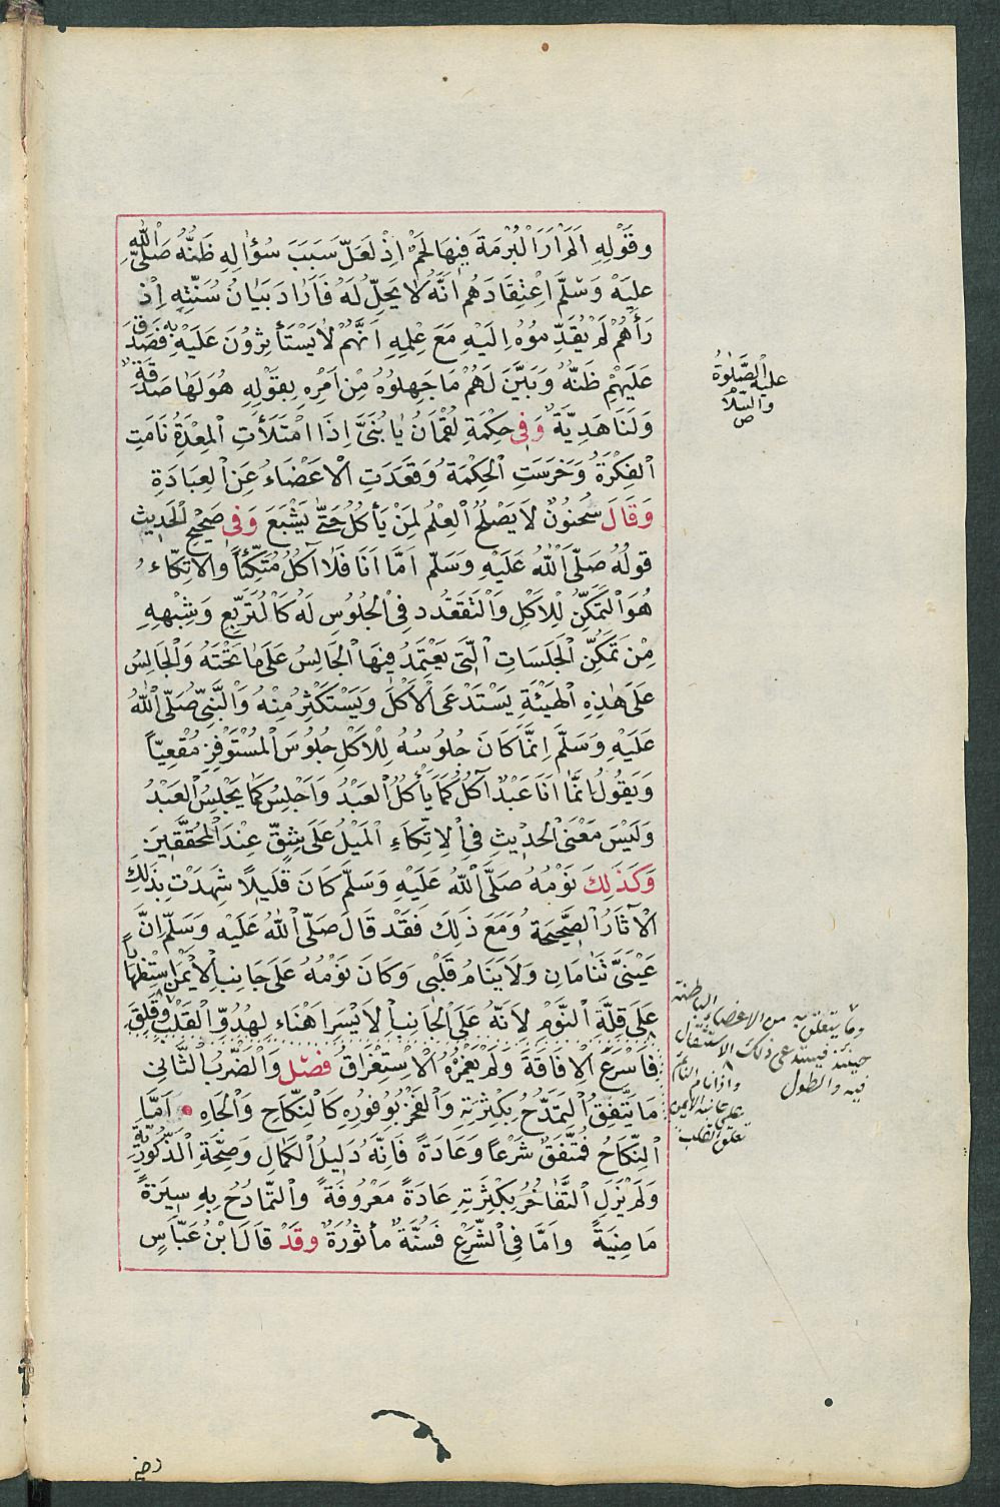 وَقَوْلِهِ اَلَمْ اَرَ الْبُرْمَةَ فِيهَا لَحْمٌ اِذْ لَعَلَّ سَبَبَ سُؤٰالِهِ ظَنُّهُ صَلَّى اللّٰهُ
عَلَيْهِ وَسَلَّمَ اِعْتِقَادَهُمْ اَنَّهُ لَا يَحِلُّ لَهُ فَاَرَادَ بَيَانُ سُنَّتِهِ اِذْ
رَأٰهُمْ لَمْ يُقَدِّمُوهُ اِلَيْهِ مَعَ عِلْمِهِ اَنَّهُمْ لَا يَسْتَأْثِرُونَ عَلَيْهِ بِهِ فَصَدَقَ
عَلَيْهِمْ ظَنُّهُ وَبَيَّنَ لَهُمْ مَا جَهِلُوهُ مِنْ اَمْرِهِ بِقَوْلِهِ هُوَ لَهَا صَدَقَةٌ
وَلَنَا هَدِيَّةٌ وَفِي حِكْمَةِ لُقْمَانُ يَا بُنَيَّ اِذَا امْتَلَأَتِ الْمِعْدَةُ نَامَتِ
الْفِكْرَةُ وَخَرَسَتِ الْحِكْمَةُ وَقَعَدَتِ الْاَعْضَاءُ عَنِ الْعِبَادَةِ
وَقَالَ سُحْنُونٌ لَا يَصْلُحُ الْعِلْمُ لِمَنْ يَأْكُلُ حَتَّى يَشْبَعَ وَفِي صَحِيحِ الْحَدِيثِ
قَوْلُهُ صَلَّى اللّٰهُ عَلَيْهِ وَسَلَّمَ اَمَّا اَنَا فَلَا اٰكُلُ مُتَّكِئًا وَالْاِتِّكَاءُ
هُوَ التَّمَكُّنُ لِلْاَكْلِ وَالتَّقَعْدُدُ فِي الْجُلُوسِ لَهُ كَالْمُتَرَبِّعِ وَشِبْهِهِ
مِنْ تَمَكُّنِ الْجَلَسَاتِ الَّتِي يَعْتَمِدُ فِيهَا الْجَالِسُ عَلَى مَا تَحْتَهُ وَالْجَالِسُ
عَلَى هٰذِهِ الْهَيْئَةِ يَسْتَدْعِى الْاَكْلَ وَيَسْتَكْثِرُ مِنْهُ وَالنَّبِيُّ صَلَّى اللّٰهُ
عَلَيْهِ وَسَلَّمَ اِنَّمَا كَانَ جُلُوسُهُ لِلْاَكْلِ جُلُوسَ الْمُسْتَوْفِزِ مُقْعِيًا
وَيَقُولُ اِنَّمَا اَنَا عَبْدٌ اٰكُلُ كَمَا يَأْكُلُ الْعَبْدُ وَاَجْلِسُ كَمَا يَجْلِسُ الْعَبْدُ
وَلَيْسَ مَعْنَى الْحَدِيثِ فِي الْاِتِّكَاءِ الْمَيْلُ عَلَى شِقٍّ عِنْدَ الْمُحَقِّقِينَ
وَكَذٰلِكَ نَوْمُهُ صَلَّى اللّٰهُ عَلَيْهِ وَسَلَّمَ كَانَ قَلِيلًا شَهِدَتْ بِذٰلِكَ
الْاٰثَارُ الصَّحِيحَةُ وَمَعَ ذٰلِكَ فَقَدْ قَالَ صَلَّى اللّٰهُ عَلَيْهِ وَسَلَّمَ اِنَّ
عَيْنَيَّ تَنَامَانِ وَلَا يَنَامُ قَلْبِى وَكَانَ نَوْمُهُ عَلَى جَانِبِهِ الْاَيْمَنِ اسْتِظْهَارًا
عَلَى قِلَّةِ النَّوْمِ لِاَنَّهُ عَلَى الْجَانِبِ الْاَيْسَرِ اَهْنَاءُ لِهُدُوِّ الْقَلْبِ وَقَلِقَ
فَاَسْرَعَ الْاِفَاقَةَ وَلَمْ يَغْمُرْهُ الْاِسْتِغْرَاقُ فَصْلٌ وَالضَّرْبُ الثَّانِى
مَا يَتَّفِقُ التَّمَدُّحُ بِكَثْرَتِهِ وَالْفَخْرُ بِوُفُورِهِ كَالنِّكَاحِ وَالْجَاهِ اَمَّا
النِّكَاحُ فَمُتَّفَقٌ شَرْعًا وَعَادَةً فَاِنَّهُ دَلِيلُ الْكَمَالِ وَصِحَّةِ الذُّكُورِيَّةِ
وَلَمْ يَزَلِ التَّفَاخُرُ بِكَثْرَتِهِ عَادَةً مَعْرُوفَةً وَالتَّمَادُحُ بِهِ سِيرَةً
مَاضِيَةً وَاَمَّا فِي الشَّرْعِ فَسُنَّةٌ مَأْثُورَةٌ وَقَدْ قَالَ ابْنُ عَبَّاسٍ
عليه الصَّلٰوةُ
والسّلا
ص
وما يتعلق به من الاعضاء الباطنة
حينئذ فيستدعى ذلك الاستثقال
فيه والطول
واذا نام النائم
على جانبه الايمن
تعلق القلب